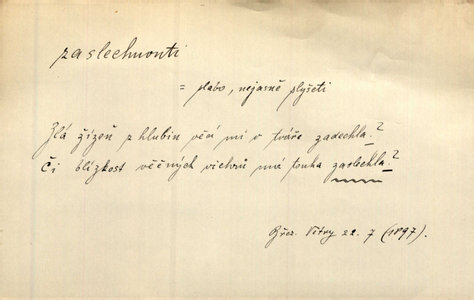 zaslechnouti
= slabo, nejasně slyšeti
Zlá žízeň z hlubin věcí mi v tváře zadechla?
Či blízkost věčných vichrů má touha zaslechla?
Břez. Větry 22. 7 (1897).